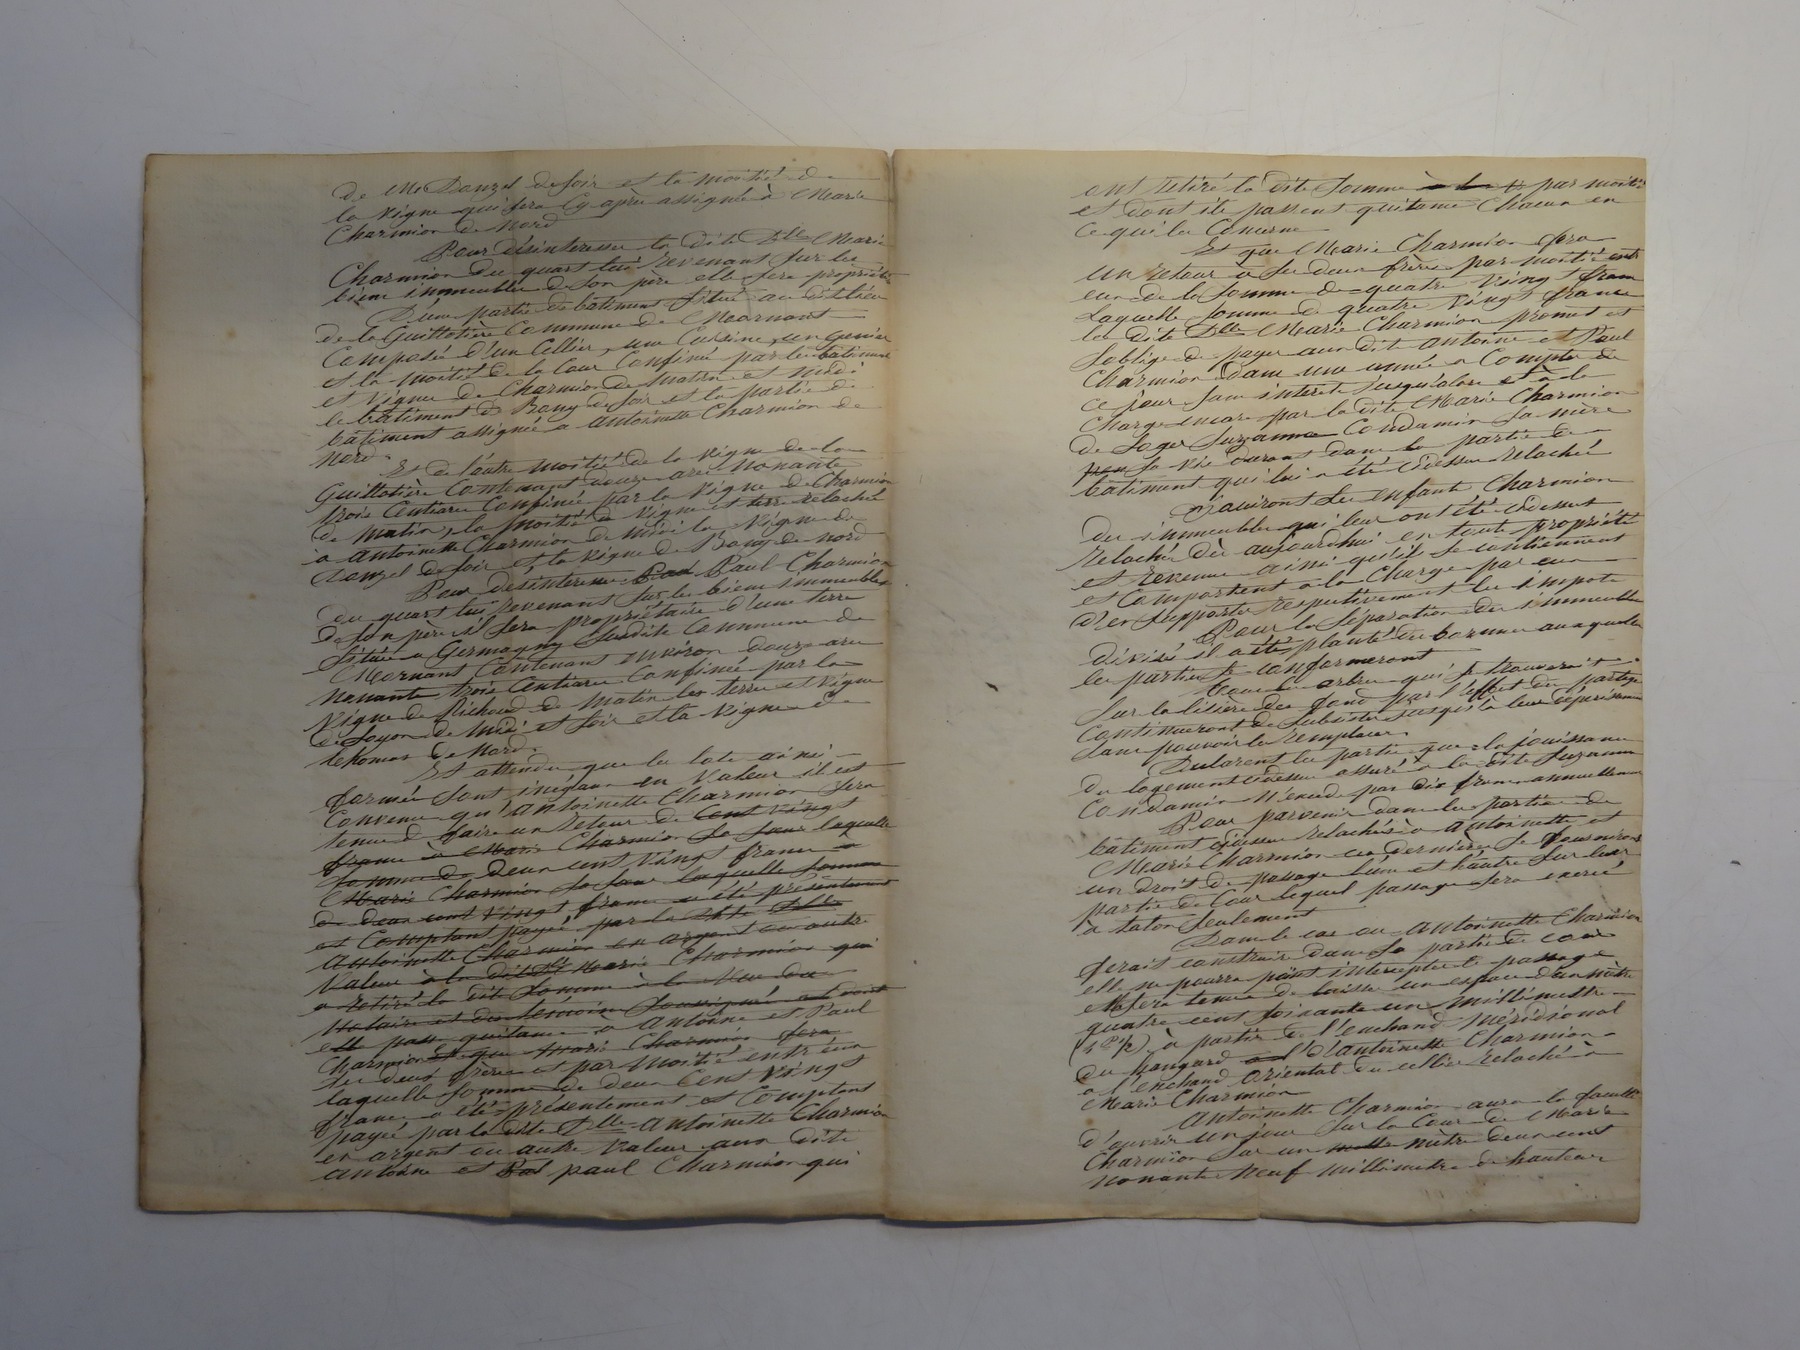 de Me Danzel de soir et la moitié de
la vigne qui sera cy après assignée à Marie
Charmion de nord
Pour désintéresser la dite Dlle Marie
Charmion du quart lui revenant sur les
biens immeubles de son père elle sera propriétaire
D'une partie de bâtiment situé au dit lieu
de la Guillotière Commune de Mornant
Composée d'un Cellier, une Cuisine, un Grenier
et la moitié de la Cour Confinée par les bâtiment
et vigne de Charmion de matin et midi
le bâtiment de Bony de soir et la partie de
bâtiment assignée a antoinette Charmion de
Nord.
Et de l'autre moitié de la vigne de la
Guillotière Contenant douze ares nonante
trois Centiares Confinée par la vigne de Charmion
de matin, la moitié de vigne et terre relachée
à Antoinette Charmion de Midi la vigne de
Danzel de soir et la vigne de Bony de nord
Pour desinteresser Paul Paul Charmion
du quart lui revenant sur les biens immeubles
de son père il sera propriétaire d'une terre
située a Germagny susdite Commune de
Mornant Contenant environ douze ares
nonante trois Centiares Confinée par la
vigne de Richoud de Matin les terre et vigne
de Goyon de Midi et soir et la vigne de
thomas de Nord.
Et attendu que les lots ainsi
formés sont inégaux en valeur il est
Convenu qu'Antoinette Charmion sera
tenue de faire un retour de Cent vingt
francs à Marie Charmion sa sœur laquelle
somme de deux cent vingt francs a
Marie Charmion sa sœur laquelle somme
de deux cent vingt francs a été présentement
et Comptant payée par la dite Dlle
Antoinette Charmion en argent ou autre
valeur à la dite Dlle Marie Charmion qui
a retiré la dite somme à la vue du
Notaire et des témoins soussignés et dont
elle passe quittance à Antoine et Paul
Charmion et que Marie Charmion fera
ses deux frères et par moitié entre eux
laquelle somme de deux Cent vingt
francs a été présentement et Comptant
payée par la dite Dlle Antoinette Charmion
en argent ou autre valeur aux dits
antoine et Pal paul Charmion qui
ont retiré la dite somme par moitié
et dont ils passent quitance Chacun en
ce qui les Concerne
Et que Marie Charmion fera
un retour a ses deux frères par moitié entre
eux de la somme de quatre vingt francs
Laquelle somme de quatre vingt francs
la dite Dlle Marie Charmion promet et
soblige de payer aux dit antoine et Paul
Charmion dans une année a Compter de
ce jour sans interet jusqu'alors et à la
Charge encore par la dite Marie Charmion
de loger Suzanne Condamin sa mère
sa vie durant dans la partie de
bâtiment qui lui a été cidessus relaché
Jouiront les enfants Charmion
des immeubles qui leur ont été cidessus
relachés dès aujourdhui en toute propriété
et revenus ainsi qu'ils se contiennent
et Comportent a la Charge par eux
d'en supporter respectivement les impots
Pour la séparation des immeubles
divisés il a été planté des bornes auxquelles
les parties se conformeront
Tous les arbres qui se trouveront
sur la lisière des fonds par l'effet du partage
Continueront de subsister jusqu'à leur dépérissement
sans pouvoir les remplacer.
Declarent les parties que la jouissance
du logement cidessus assuré a la dite Suzanne
Condamin n'excede pas dix francs annuellement
Pour parvenir dans les parties de
bâtiment cidessus relachés à Antoinette et
Marie Charmion ces dernières se fourniront
un droit de passage l'une et l'autre sur leur
partie de Cour lequel passage sera exercé
à talon seulement
Dans le cas ou Antoinette Charmion
ferait construire dans sa partie de cour
elle ne pourra point intercepter le passage
et sera tenue de laisser un espace d'un mètre
quatre cent soixante un millimètres
(4 P ½) à partir de l'enchand méridional
du hangard d'Antoinette Charmion
a l'enchand oriental du cellier relaché à
Marie Charmion
Antoinette Charmion aura la faculté
d'ouvrir un jour sur la Cour de Marie
Charmion sur un mètre deux cent
nonante neuf millimètres de hauteur